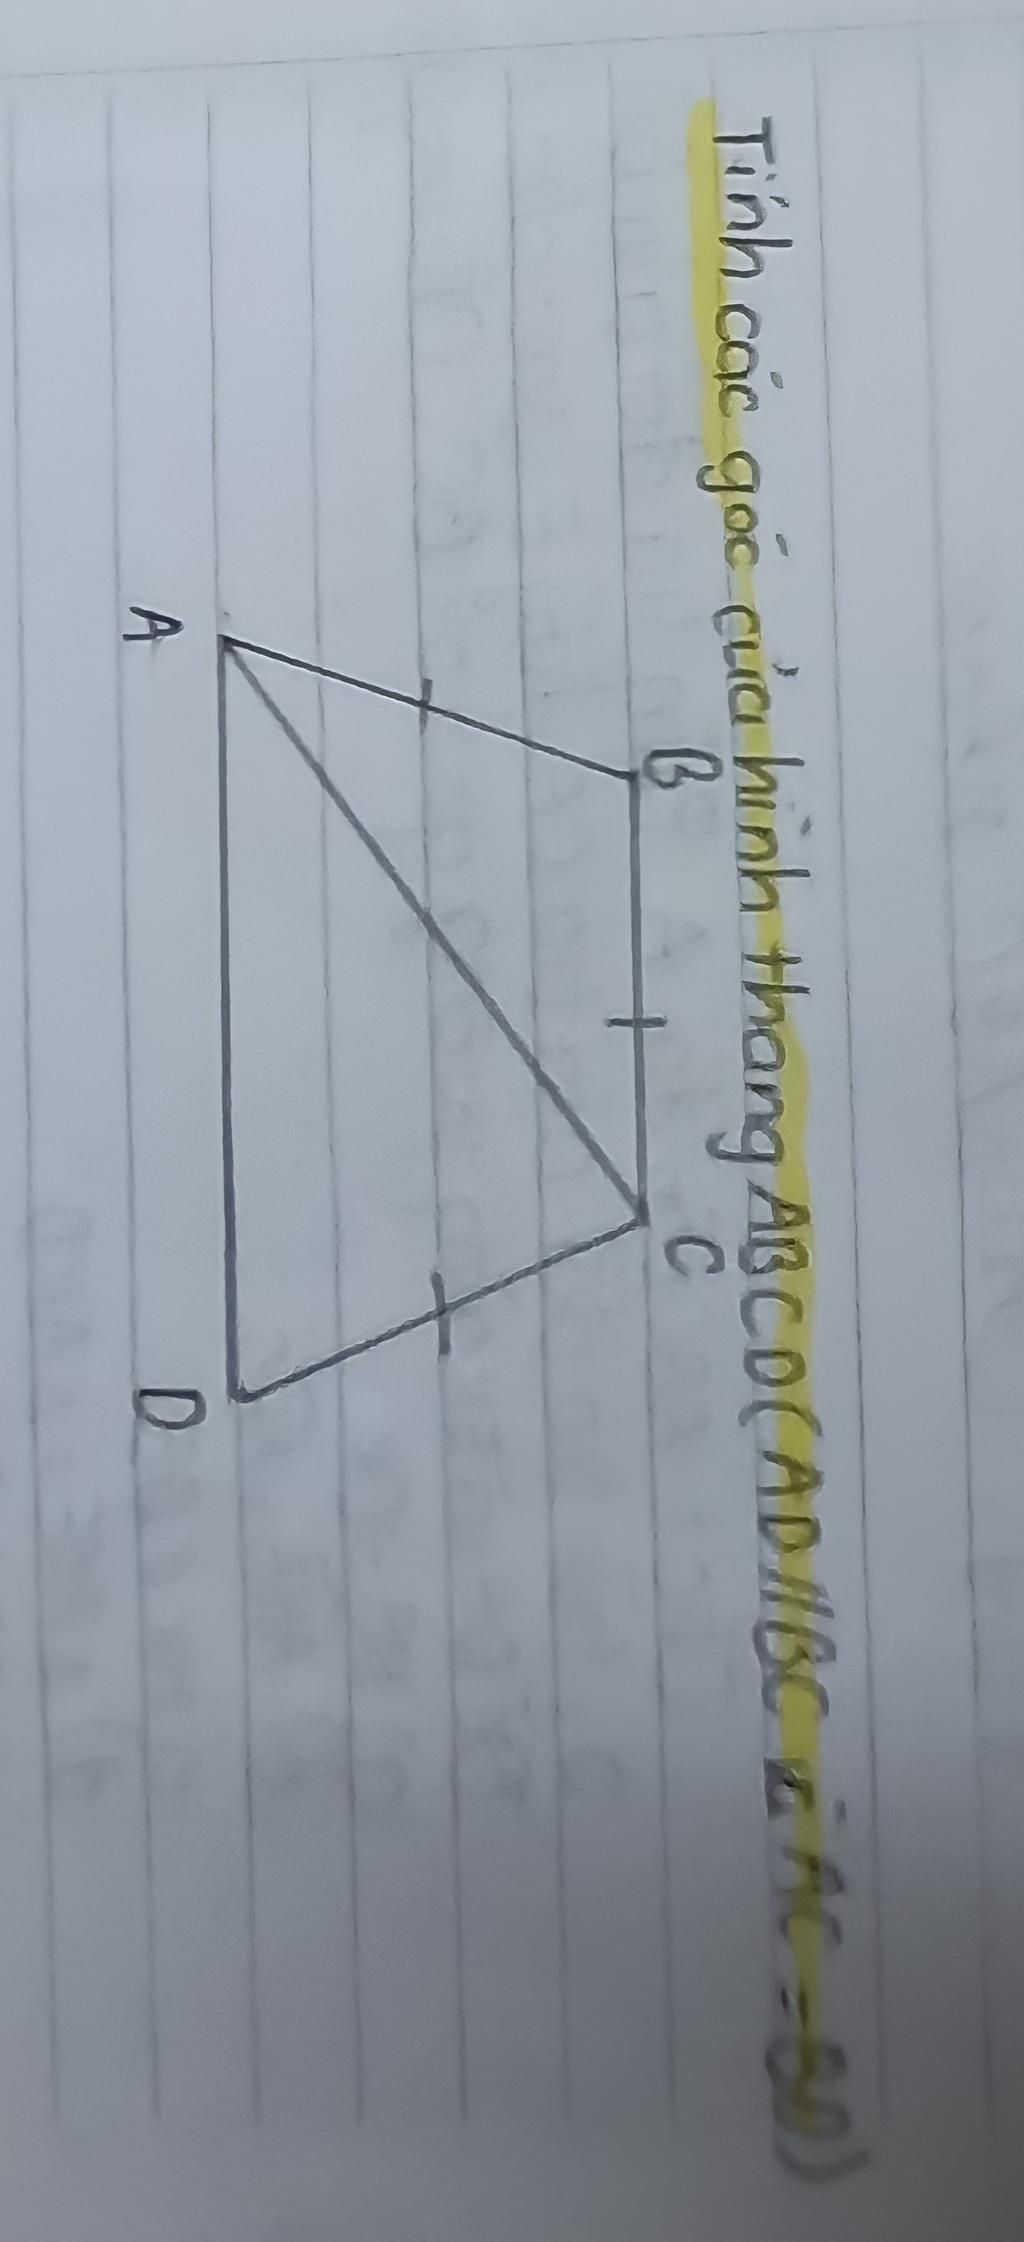 Tính các góc của hình thang ABCD (AD//BC AC = BD)
B
C
A
D